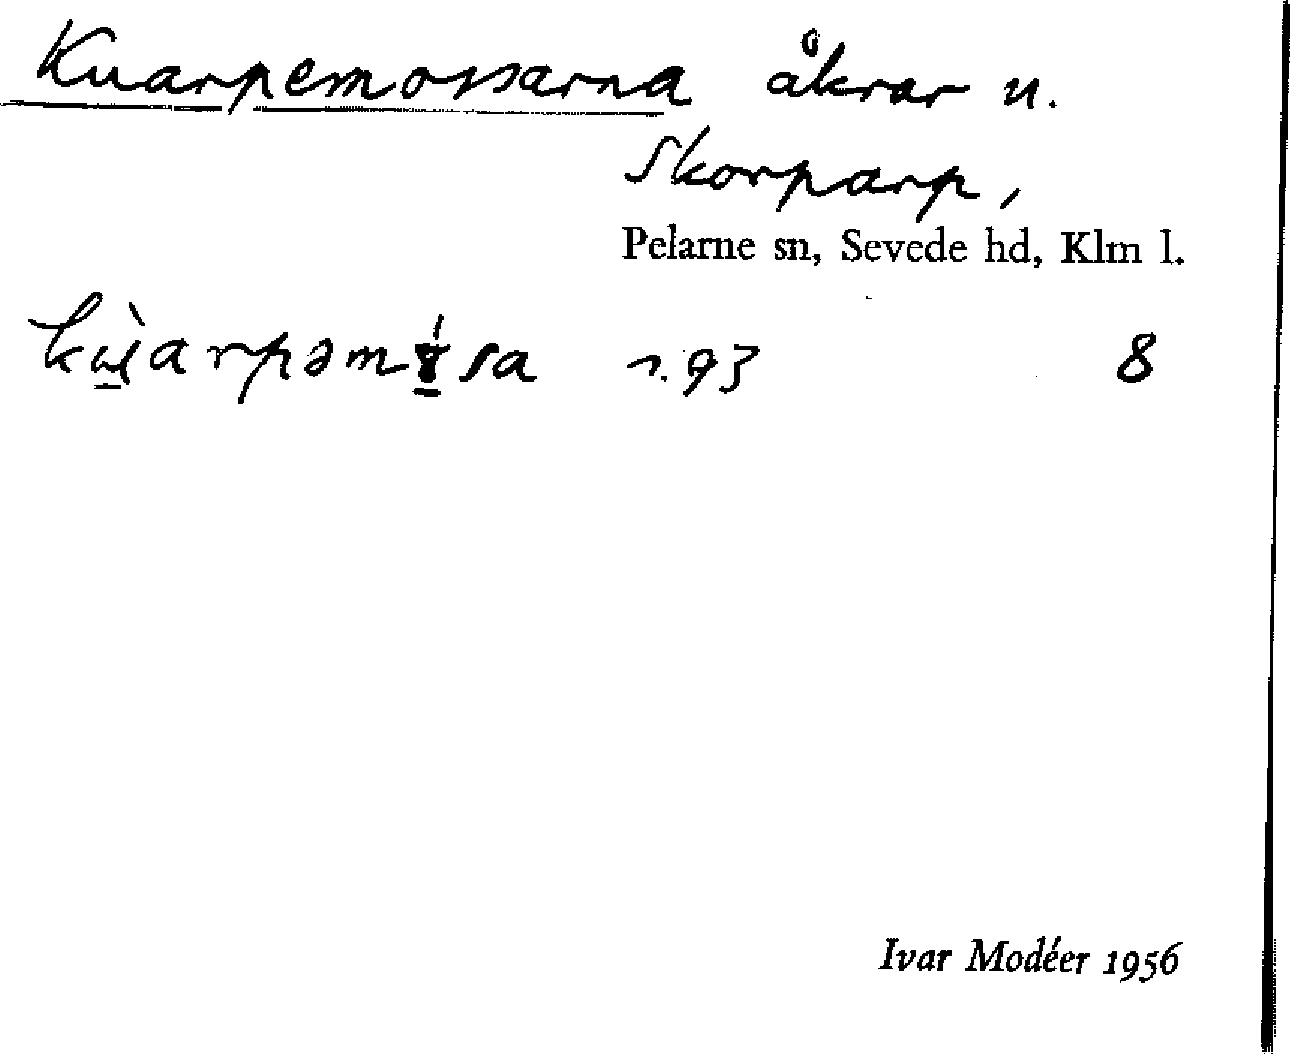 Kuarpemossarna åkrar u.
Skorparp,
Pelarne sn, Sevede hd, Klm l.
8
Ivar Modéer 1956